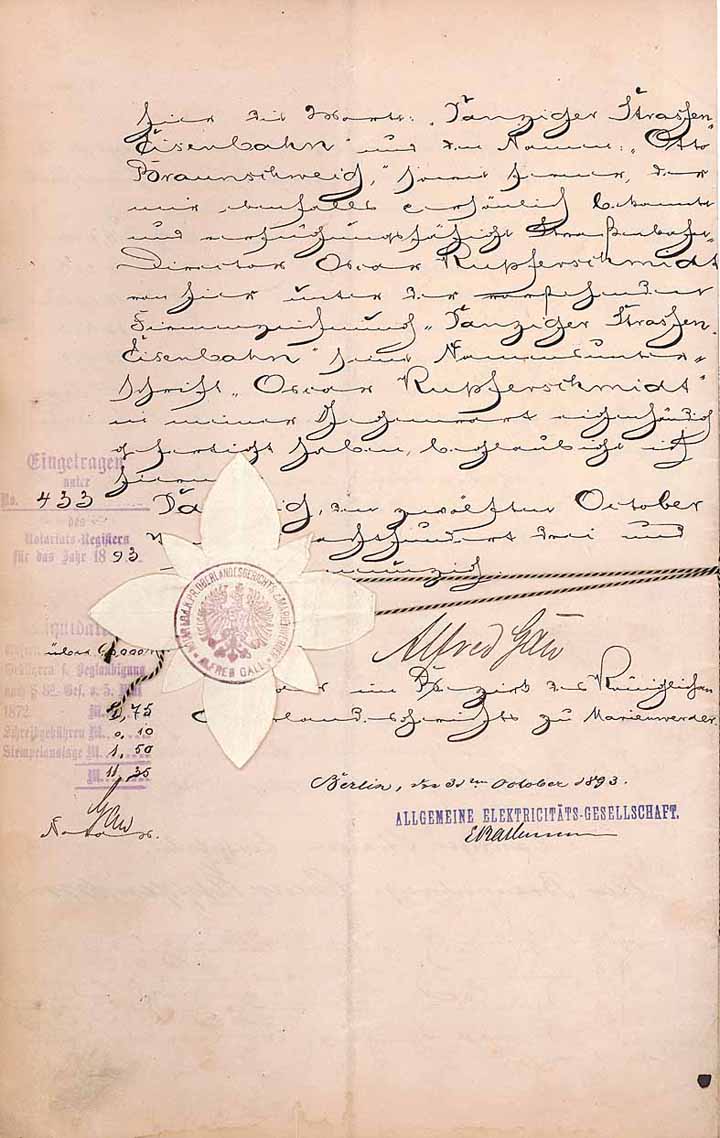 hier die Worte: „Danziger Strassen
Eisenbahn" und den Namen: „Otto
Braunschweig," sowie ferner, der
mir ebenfalls persönlich bekannte
und verfügungsfähige Straßenbahn-
Director Oscar Kupferschmidt
von hier unter der vorstehenden
Firmenzeichnung „Danziger Strassen-
Eisenbahn" seine Namensunter-
schrift „Oscar Kupferschmidt"
in meiner Gegenwart eigenhändig
gefertigt haben, beglaubige ich
hier
Da ig, den zwölften October
hundert drei und
unzig.
Eingetragen
unter
No. 433
des
Notariats-Registers
für das Jahr 1893.
OBERLANDESGERICHTS Z. MARIENWERDER
* ALFRED GALL *
Alfred Gall
im Bezirk des Königlichen
landesgerichts zu Marienwerder.
Liquidation
über
Gebühren f. Beglaubigung
nach § 82 Ges. v. 3. Mai
1872 M. 75
Schreibgebühren M. 0, 10
Stempelauslage M. 1, 50
M. 11, 35
Gall
Notar
Berlin, den 31ten October 1893.
ALLGEMEINE ELEKTRICITÄTS-GESELLSCHAFT.
ERathenau